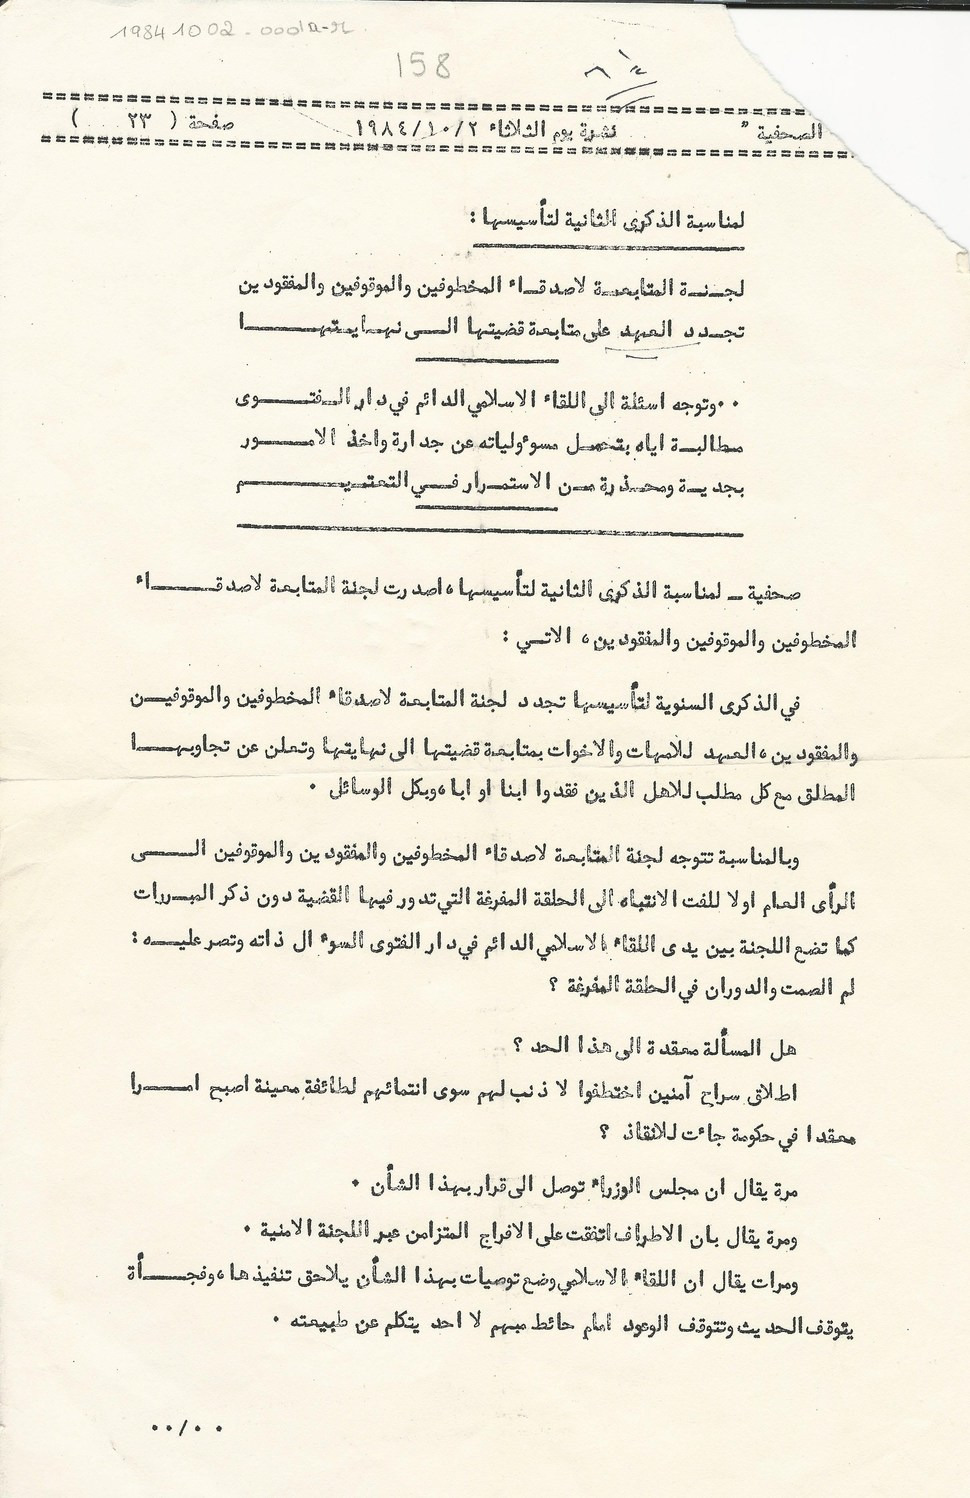 19841002-0001a-
158
الصحفية " نشرة يوم الثلاثاء ١٩٨٤/١٠/٢ صفحة ( ٢٣ )
لمناسبة الذكرى الثانية لتأسيسها :
لجنة المتابعة لاصدقاء المخطوفين والموقوفين والمفقودين
تجدد العهد على متابعة قضيتها الى نهايتها
٠٠وتوجه اسئلة الى اللقاء الاسلامي الدائم في دار الفتوى
مطالبة اياه بتحمل مسوءولياته عن جدارة واخذ الامور
بجدية ومحذرة من الاستمرار في التعتيم
صحفية ـ لمناسبة الذكرى الثانية لتأسيسها ، اصدرت لجنة المتابعة لاصدقاء
المخطوفين والموقوفين والمفقودين ، الاتي :
في الذكرى السنوية لتأسيسها تجدد لجنة المتابعة لاصدقاء المخطوفين والموقوفين
والمفقودين ، العهد للامهات والاخوات بمتابعة قضيتها الى نهايتها وتعلن عن تجاوبها
المطلق مع كل مطلب للاهل الذين فقدوا ابنا او ابا ، وبكل الوسائل ٠
وبالمناسبة تتوجه لجنة المتابعة لاصدقاء المخطوفين والمفقودين والموقوفين الى
الرأى العام اولا للفت الانتباه الى الحلقة المفرغة التي تدور فيها القضية دون ذكر المبررات
كما تضع اللجنة بين يدى اللقاء الاسلامي الدائم في دار الفتوى السوءال ذاته وتصر عليه :
لم الصمت والدوران في الحلقة المفرغة ؟
هل المسألة معقدة الى هذا الحد ؟
اطلاق سراح آمنين اختطفوا لا ذنب لهم سوى انتمائهم لطائفة معينة اصبح امرا
معقدا في حكومة جاءت للانقاذ ؟
مرة يقال ان مجلس الوزراء توصل الى قرار بهذا الشأن ٠
ومرة يقال بان الاطراف اتفقت على الافراج المتزامن عبر اللجنة الامنية ٠
ومرات يقال ان اللقاء الاسلامي وضع توصيات بهذا الشأن يلاحق تنفيذها ، وفجأة
يتوقف الحديث وتتوقف الوعود امام حائط مبهم لا احد يتكلم عن طبيعته ٠
٠٠/٠٠